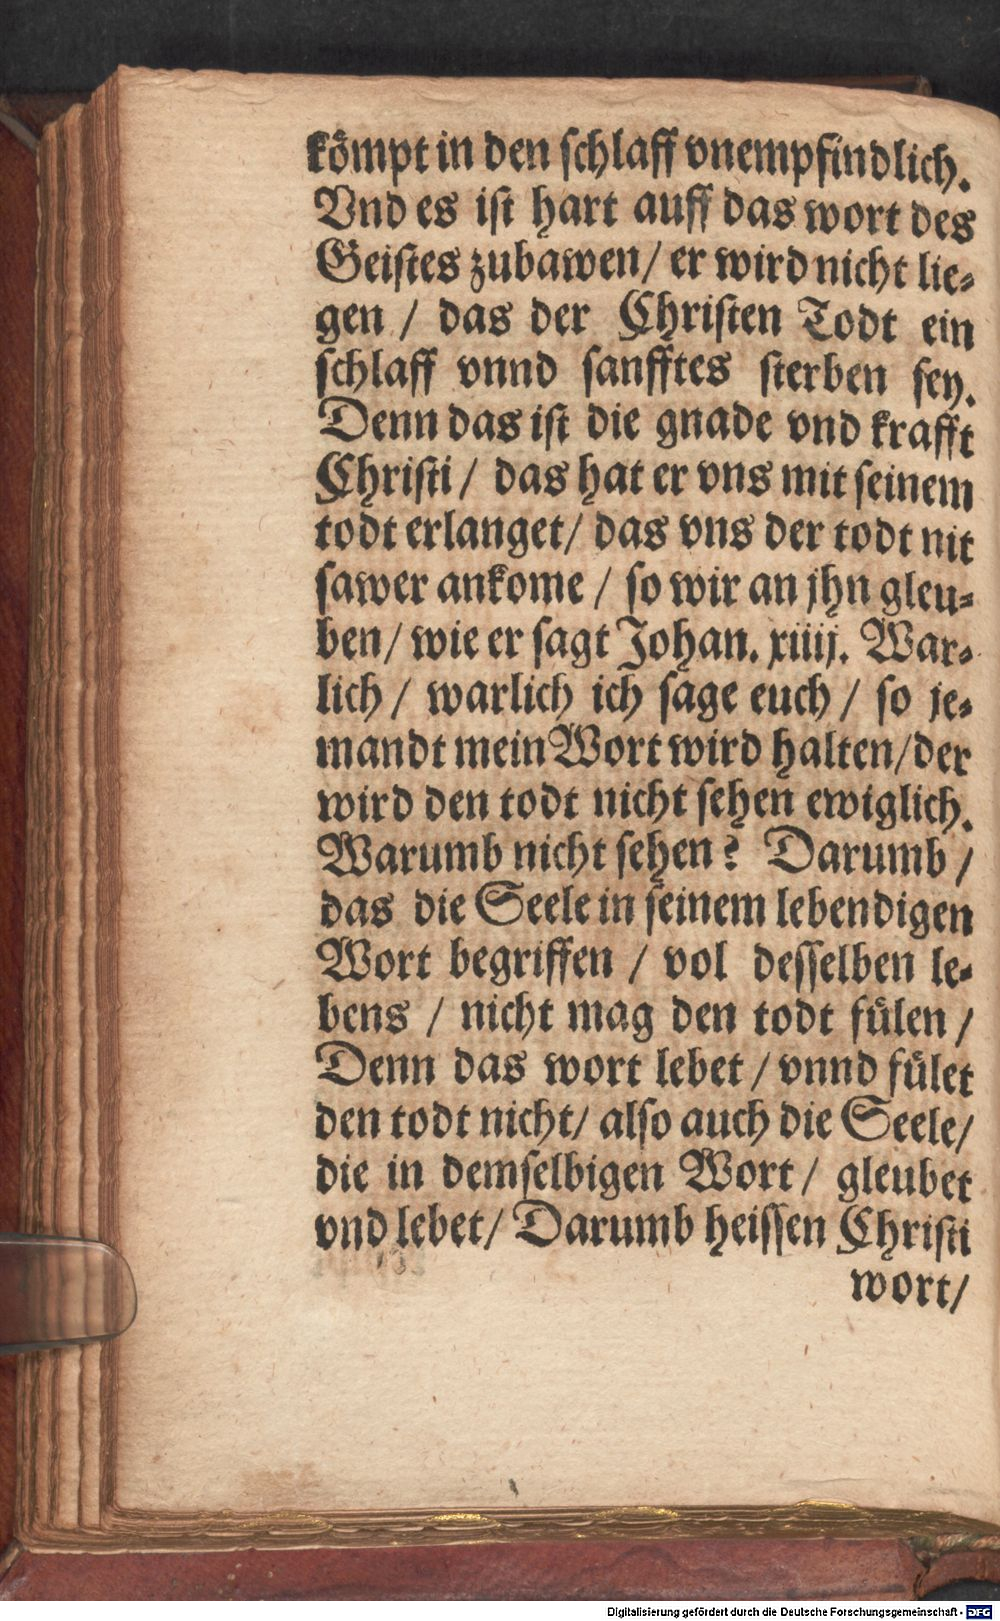 kömpt in den schlaff vnempfindlich.
Vnd es ist hart auff das wort des
Geistes zubawen / er wird nicht lie-
gen / das der Christen Todt ein
schlaff vnnd sanfftes sterben sey.
Denn das ist die gnade vnd krafft
Christi / das hat er vns mit seinem
todt erlanget / das vns der todt nit
sawer ankome / so wir an jhn gleu-
ben / wie er sagt Johan. xiiij. War-
lich / warlich ich sage euch / so je-
mandt mein Wort wird halten / der
wird den todt nicht sehen ewiglich.
Warumb nicht sehen? Darumb /
das die Seele in seinem lebendigen
Wort begriffen / vol desselben le-
bens / nicht mag den todt fülen /
Denn das wort lebet / vnnd fület
den todt nicht / also auch die Seele /
die in demselbigen Wort / gleubet
vnd lebet / Darumb heissen Christi
wort /
Digitalisierung gefördert durch die Deutsche Forschungsgemeinschaft - DFG